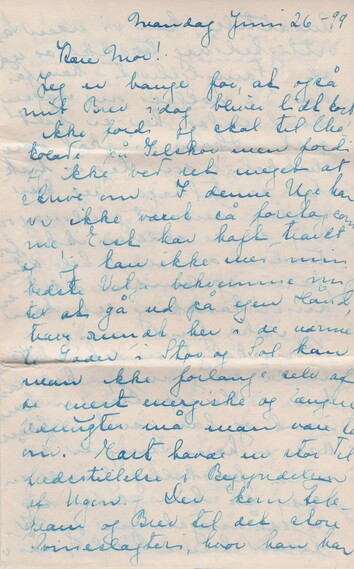 Mandag Juni 26 - 99
Kære Mor!
Jeg er bange for, at også
mit Brev idag bliver lidt kort
ikke fordi jeg skal til Cho
kolade på men fordi
j ikke ved ret meget at
skrive om. I denne Uge har
vi ikke været så foretagsom
me! Ernst har haft travlt
og jg kan ikke med min
bedste Vilje bekvemme mig
til at gå ud på egen Hånd,
trave rundt her i de varme
Gader i Støv og Sol kan
man ikke forlange selv af
de mest energiske og
må man være
om. havde en stor Til
fredsstillelse i Begyndelsen
af Ugen. - Der kom Tele
gram og Brev til det store
Svineslagteri, hvor han har